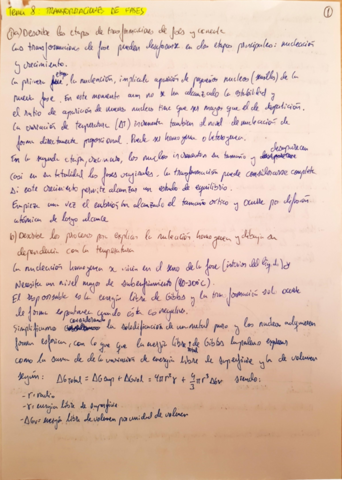 TEMA 8: TRANSFORMACIONES DE FASES
1
a) Describe las etapas de transformaciones de fases y comenta
Las transformaciones de fase pueden desglosarse en dos etapas principales: nucleación
y crecimiento.
La primera etapa, la nucleación, implica la aparición de pequeños núcleos de la
nueva fase. En este momento aun no se ha alcanzado la estabilidad y
el ratio de aparición de nuevos nucleos tiene que ser mayor que el de desaparición.
La variación de temperatura (ΔT) incrementa también el nivel de nucleación de
forma directamente proporcional. Puede ser homogenea o heterogenea.
En la segunda etapa, crecimiento, los nucleos incrementan su tamaño y desaparecen
casi en su totalidad las fases originales. La transformación puede considerarse completa
si este crecimiento permite alcanzar un estado de equilibrio.
Empieza una vez el embrión ha alcanzado el tamaño crítico y ocurre por difusión
atómica de largo alcance.
b) Describe los procesos por explica la nucleación homogenea y dibuja su
dependencia con la temperatura
La nucleación homogenea se da en el seno de la fase (interior del líquido) y
necesita un nivel mayor de subenfriamiento
El responsable es la energía libre de Gibbs y la transformación solo ocurre
de forma espontánea cuando ésta es negativa.
Simplificamos considerando la solidificación de un metal puro y los nucleos adquieren
forma esférica, con lo que la energía libre de Gibbs la podemos expresar
como la suma de la variación de energía libre de superficie y la de volumen
según: ΔGtotal = ΔGsup + ΔGvol = 4πr²γ + 4/3 πr³ ΔGv siendo:
- r = radio
- γ = energía libre de superficie
- ΔGv = energía libre de volumen por unidad de volumen